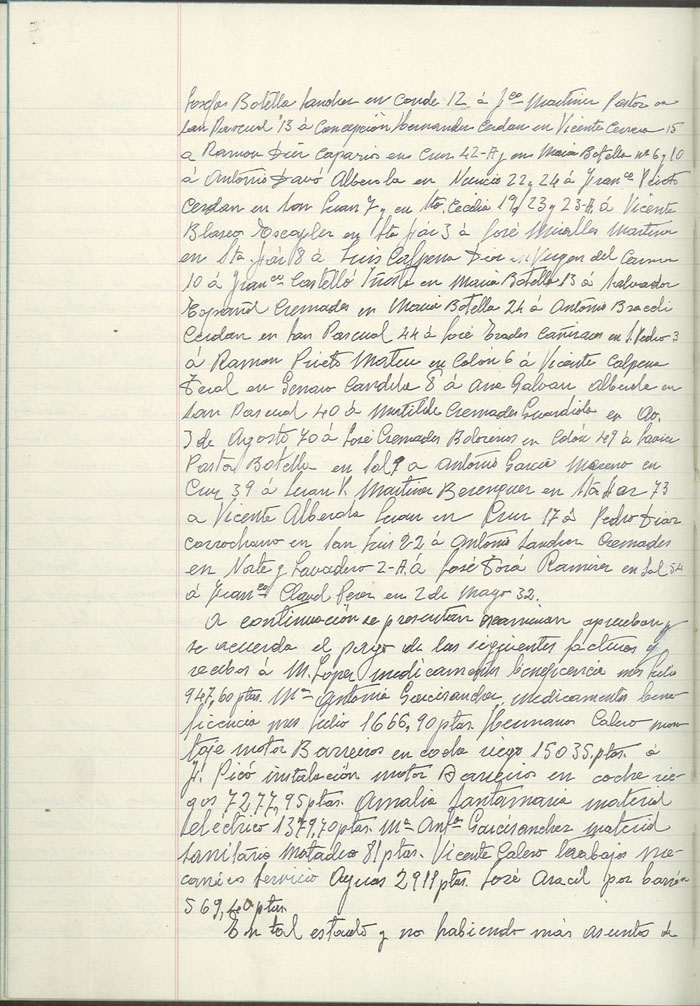 Botella Sanchez en Conde 12 á Fco Martinez Pastor en
San Pascual 13 á Concepción Hernandez Cerdan en Vicente Cervera 15
a Ramon Diez Caparros en Cruz 42-A y en Maria Botella nº 6 y 10
á Antonio Davó Alberola en Nuncio 22 y 24 á Franco Prieto
Cerdan en San Juan 7 y en Sta. Cecilia 19, 23 y 23-A. á Vicente
Blasco en Sta 3 á José Miralles Martinez
en Sta 8 á Luis Calpena Diez en Virgen del Carmen
10 á Franco Castelló en Maria Botella 13 á Salvador
Español Cremades en Maria Botella 24 á Antonio
Cerdan en San Pascual 44 á José Prades Cañizares en S. Pedro 3
á Ramon Prieto Mateu en Colón 6 á Vicente Calpena
en Genaro Candela 8 á Ana Galvan Alberola en
San Pascual 40 á Matilde Cremades Guardiola en Av.
3 de Agosto 70 á José Cremades en Colón 49 á
Pastor Botella en Sol 9 a Antonio Garcia Moreno en
Cruz 39 á Juan V. Martinez Berenguer en Sta 73
a Vicente Alberola Juan en Cruz 17 á Pedro Diaz
Carrochano en San Luis 22 á Antonio Sanchez Cremades
en Norte y Lavadero 2-A. á José Torá Ramirez en Sol 54
á Franco Claud Perez en 2 de Mayo 32.
A continuación se presentan examinan aprueban y
se acuerda el pago de las siguientes facturas y
recibos á M. Lopez medicamentos beneficencia mes Julio
947,60 ptas. Mª Antonia Garcisanchez, medicamentos bene-
ficencia mes Julio 1666,90 ptas. Hermanos Calero mon-
taje motor Barreiros en coche riego 15035, ptas. á
Picó instalación motor Barreiros en coche rie-
gos 7277,95 ptas. Amalia Santamaria material
electrico 1379,70 ptas. Mª Antª Garcisanchez material
sanitário Matadero 81 ptas. Vicente Calero trabajos me-
canicos servicio Aguas 2918 ptas. José Aracil por
569,40 ptas.
En tal estado y no habiendo más asuntos de